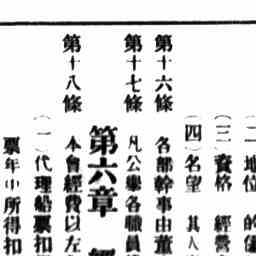 (二)地位 的
(三)資格 經營
(四)名望 其人
第十六條 各部幹事由董
第十七條 凡公舉各職員
第六章 經
第十八條 本會經費以左
(一)代理船票扣
票年中所得扣